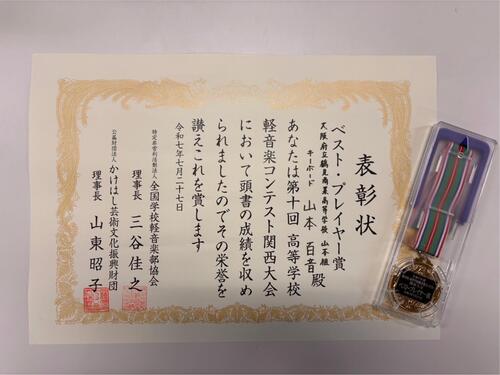 表彰状
ベスト・プレイヤー賞
大阪府立鶴見商業高等学校 山本組
キーボード 山本 百音 殿
あなたは第十回 高等学校
軽音楽コンテスト関西大会
において頭書の成績を収め
られましたのでその栄誉を
讃えこれを賞します
令和七年七月二十七日
特定非営利活動法人 全国学校軽音楽部協会
理事長 三谷佳之
公益財団法人 かけはし芸術文化振興財団
理事長 山東昭子
ベスト・プレイヤー賞